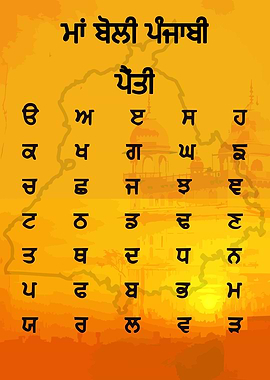 ਮਾਂ ਬੋਲੀ ਪੰਜਾਬੀ
ਪੈਂਤੀ
ੳ ਅ ੲ ਸ ਹ
ਕ ਖ ਗ ਘ ਙ
ਚ ਛ ਜ ਝ ਞ
ਟ ਠ ਡ ਢ ਣ
ਤ ਥ ਦ ਧ ਨ
ਪ ਫ ਬ ਭ ਮ
ਯ ਰ ਲ ਵ ੜ